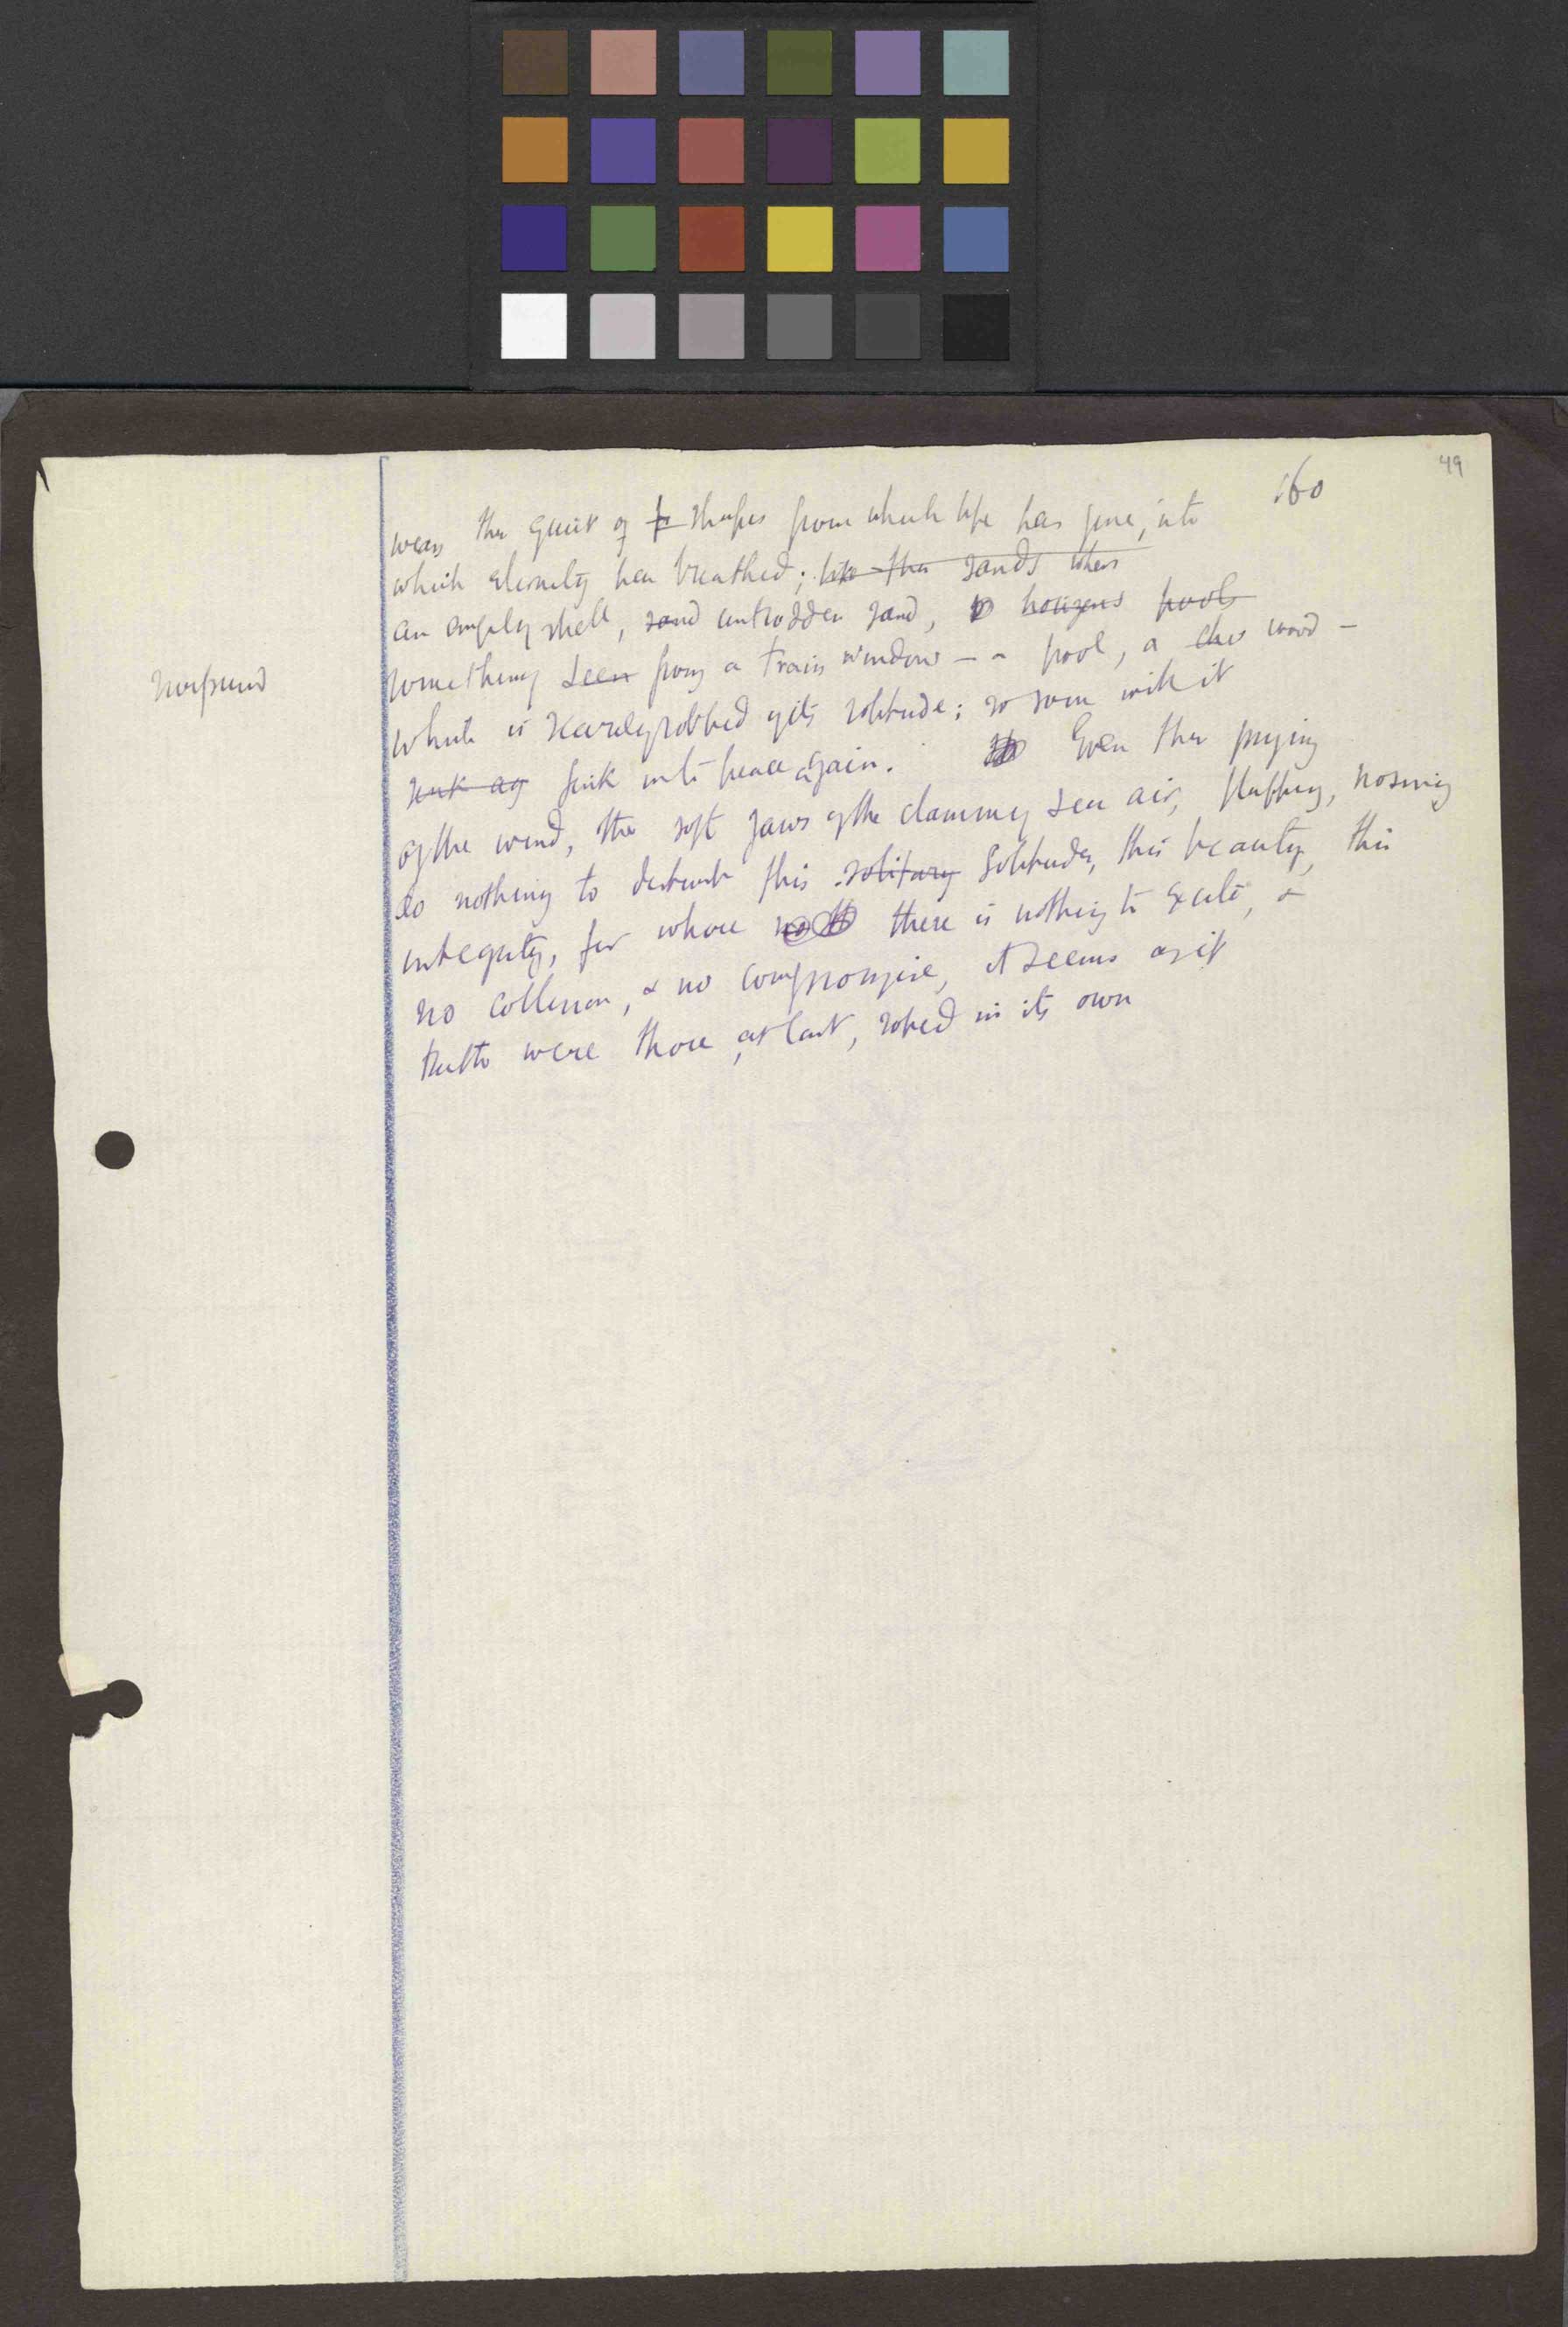 49
160
wears the quiet of t shapes from which life has gone, into
which eternity has breathed; like the sands where
an empty shell, sand untrodden sand, horizons pools
something seen from a train window — a pool, a wood —
which is scarcely robbed of its solitude; so soon with it
sink ag sink into peace again. Even the prying
of the wind, the soft jaws of the clammy sea air, fluffing, nosing
do nothing to disturb this solitary solitude, this beauty, this
integrity, for whose there is nothing to excite, &
no collision, & no compromise, it seems as if
truth were those, at last, robed in its own